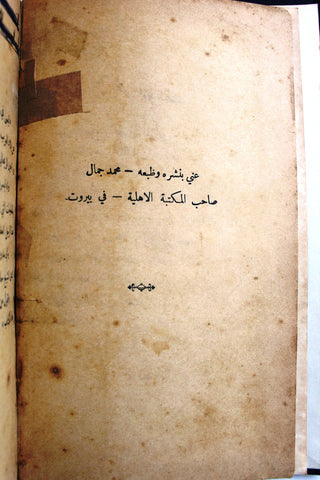 عني بنشره وطبعه — محمد جمال
صاحب المكتبة الاهلية — في بيروت